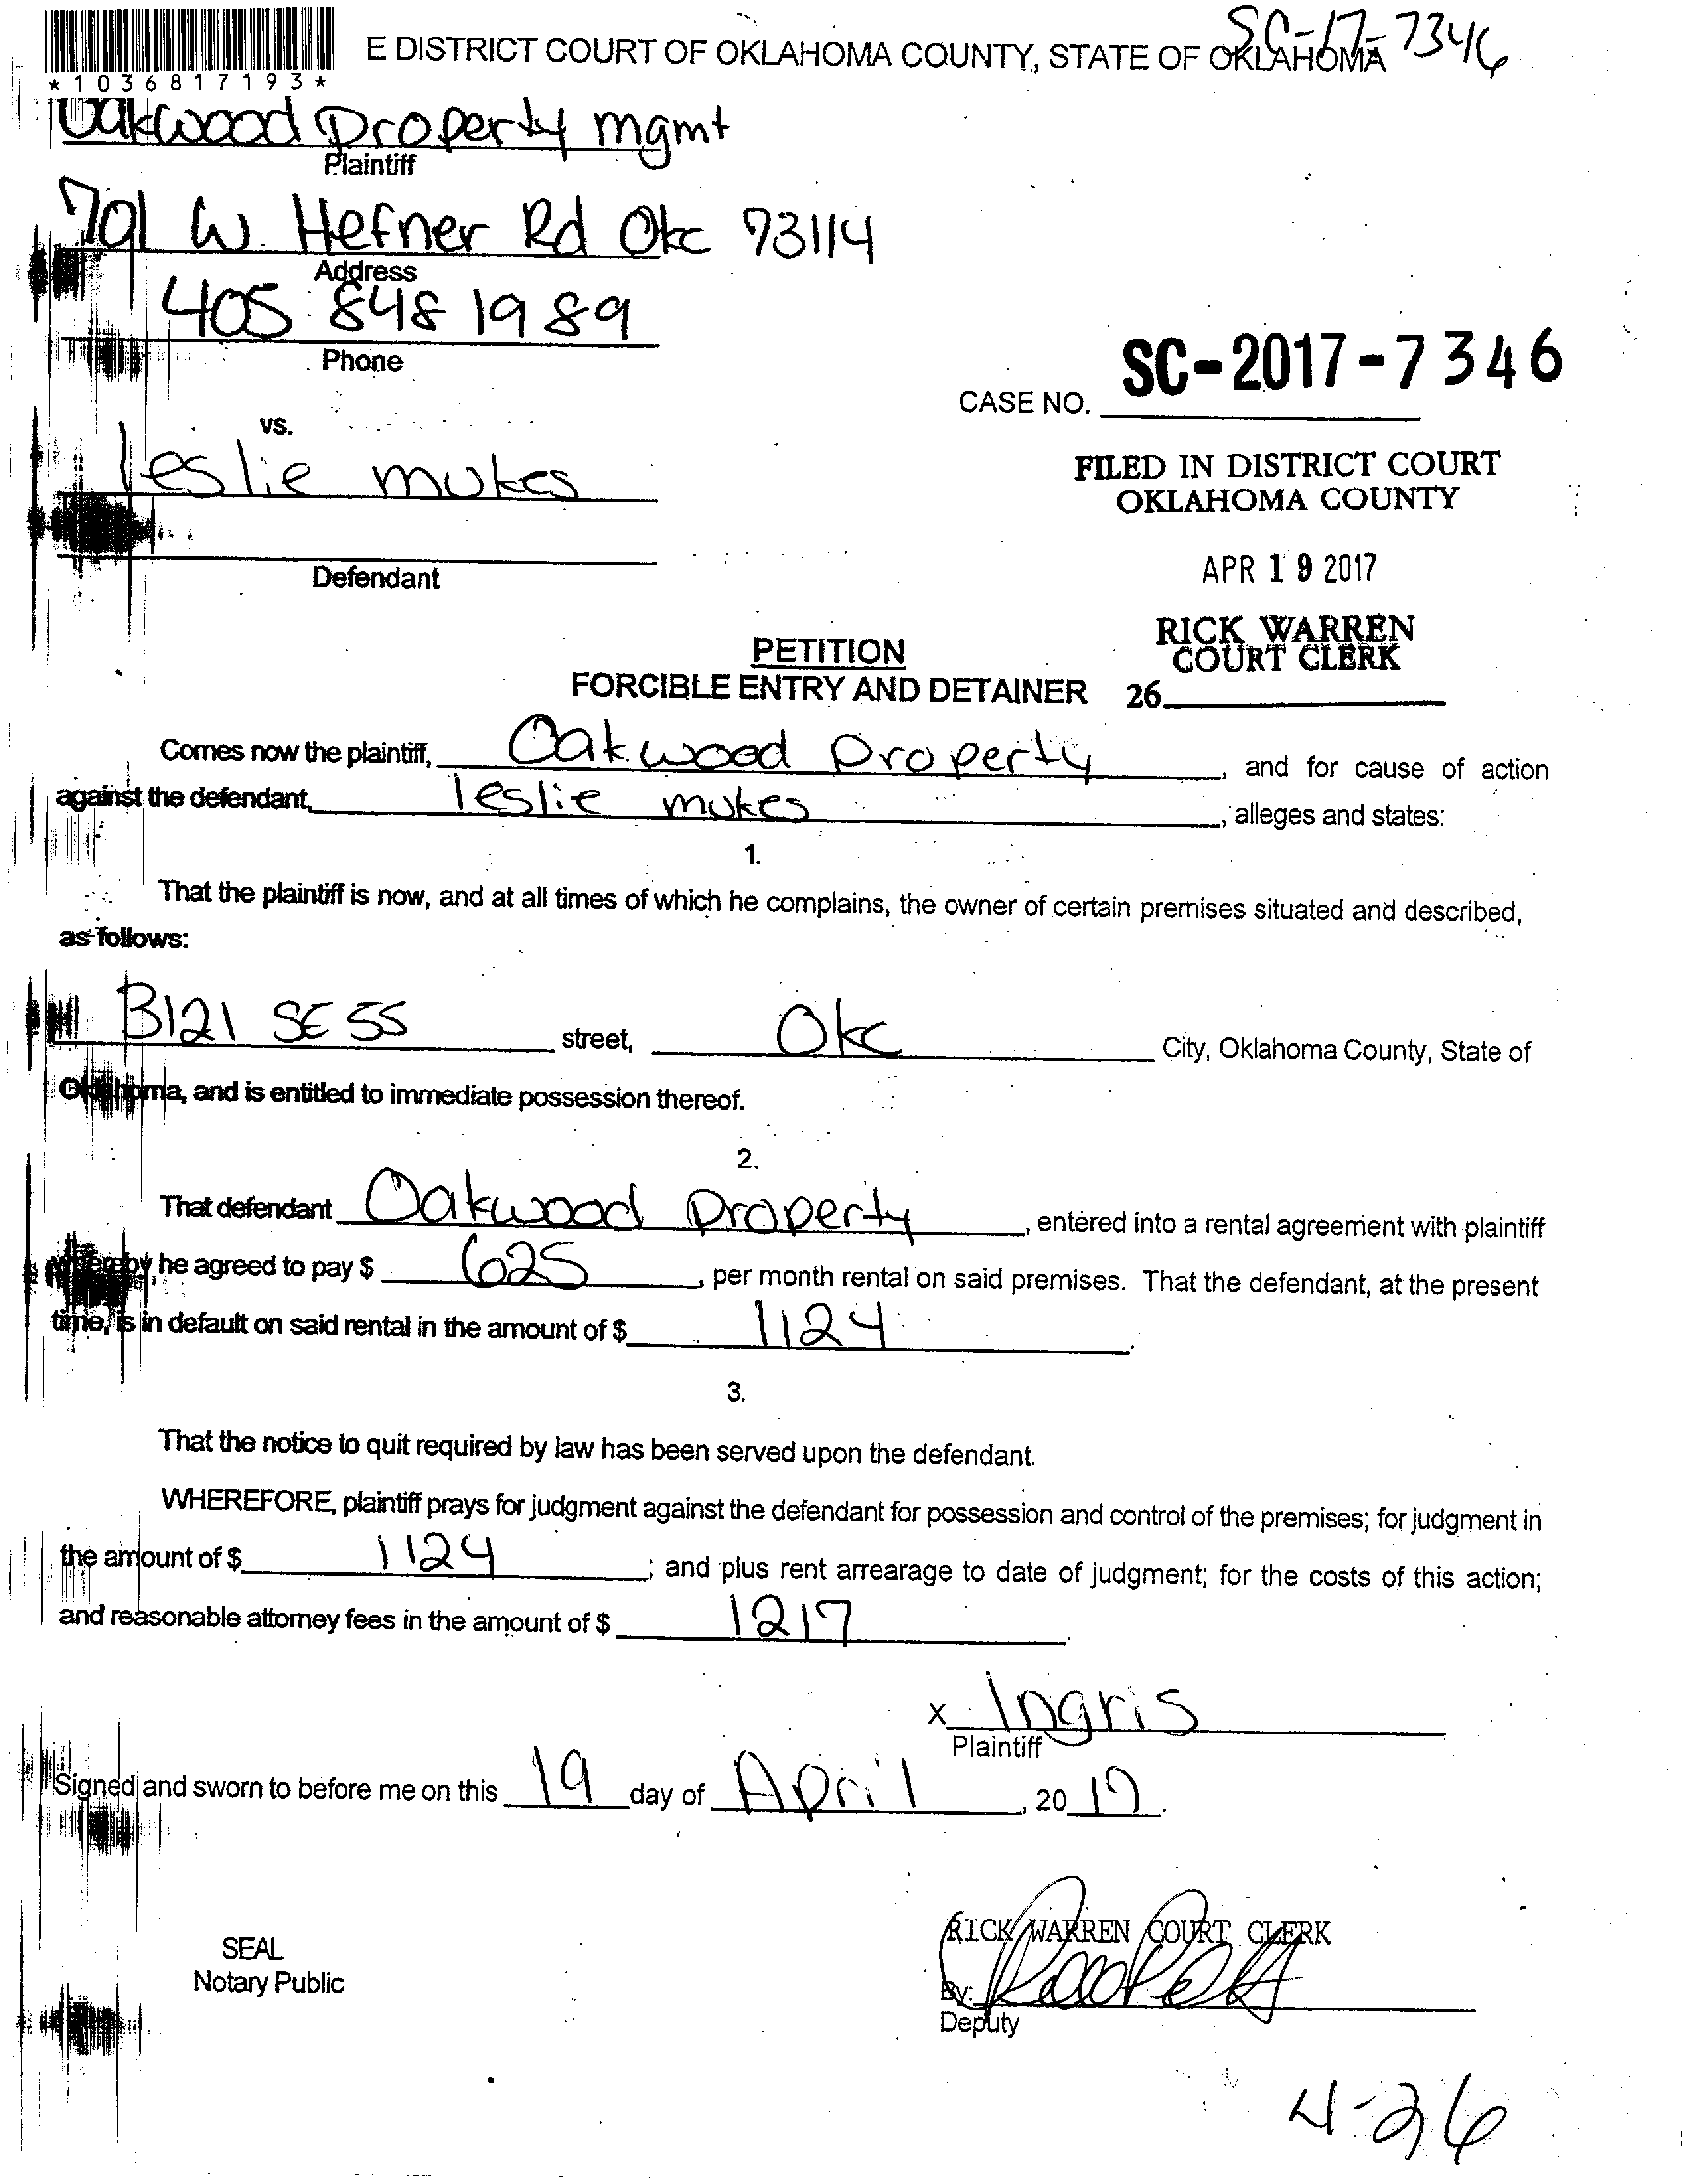 E DISTRICT COURT OF OKLAHOMA COUNTY, STATE OF OKLAHOMA SC-17-7346
*1036817193*
Oakwood Property mgmt
Plaintiff
701 W. Hefner Rd Okc 73114
Address
405 848 1989
Phone
CASE NO. SC-2017-7346
vs.
leslie mukes
FILED IN DISTRICT COURT
OKLAHOMA COUNTY
APR 19 2017
Defendant
RICK WARREN
COURT CLERK
PETITION
FORCIBLE ENTRY AND DETAINER 26
Comes now the plaintiff, Oakwood Property, and for cause of action
against the defendant, leslie mukes, alleges and states:
1.
That the plaintiff is now, and at all times of which he complains, the owner of certain premises situated and described,
as follows:
3121 SE 55 street, Okc City, Oklahoma County, State of
Oklahoma, and is entitled to immediate possession thereof.
2.
That defendant Oakwood Property, entered into a rental agreement with plaintiff
whereby he agreed to pay $ 625, per month rental on said premises. That the defendant, at the present
time, is in default on said rental in the amount of $ 1124.
3.
That the notice to quit required by law has been served upon the defendant.
WHEREFORE, plaintiff prays for judgment against the defendant for possession and control of the premises; for judgment in
the amount of $ 1124; and plus rent arrearage to date of judgment; for the costs of this action;
and reasonable attorney fees in the amount of $ 1217.
x Ingris
Plaintiff
Signed and sworn to before me on this 19 day of April, 20 17.
RICK WARREN COURT CLERK
SEAL
Notary Public
By:
Deputy
4-26